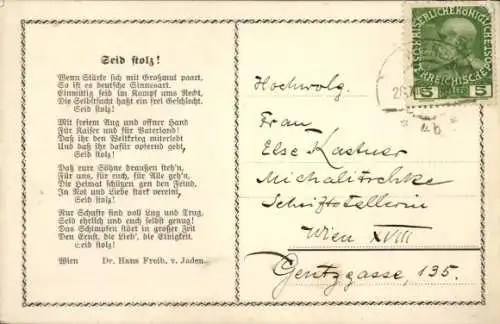 Seid stolz!
Wenn Stärke sich mit Großmut paart,
So ist es deutsche Sinnesart.
Einmütig seid im Kampf ums Recht,
Die Selbstsucht haßt ein frei Geschlecht.
Seid stolz!
Mit freiem Aug und offner Hand
Für Kaiser und für Vaterland!
Daß ihr den Weltkrieg miterlebt
Und daß ihr dafür opfernd gebt,
Seid stolz!
Daß eure Söhne draußen steh'n,
Für uns, für euch, für Alle geh'n,
Die Heimat schützen gen den Feind,
In Not und Liebe stark vereint,
Seid stolz!
Nur Schufte sind voll Lug und Trug,
Seid ehrlich und euch selbst genug!
Das Schimpfen stört in großer Zeit
Den Ernst, die Lieb', die Einigkeit.
Seid stolz!
Wien Dr. Hans Freih. v. Jaden.
5 5
Hochwolg.
Frau
Else Kastner
Michalitschke
Schriftstellerin
Wien XVIII
Gentzgasse, 135.